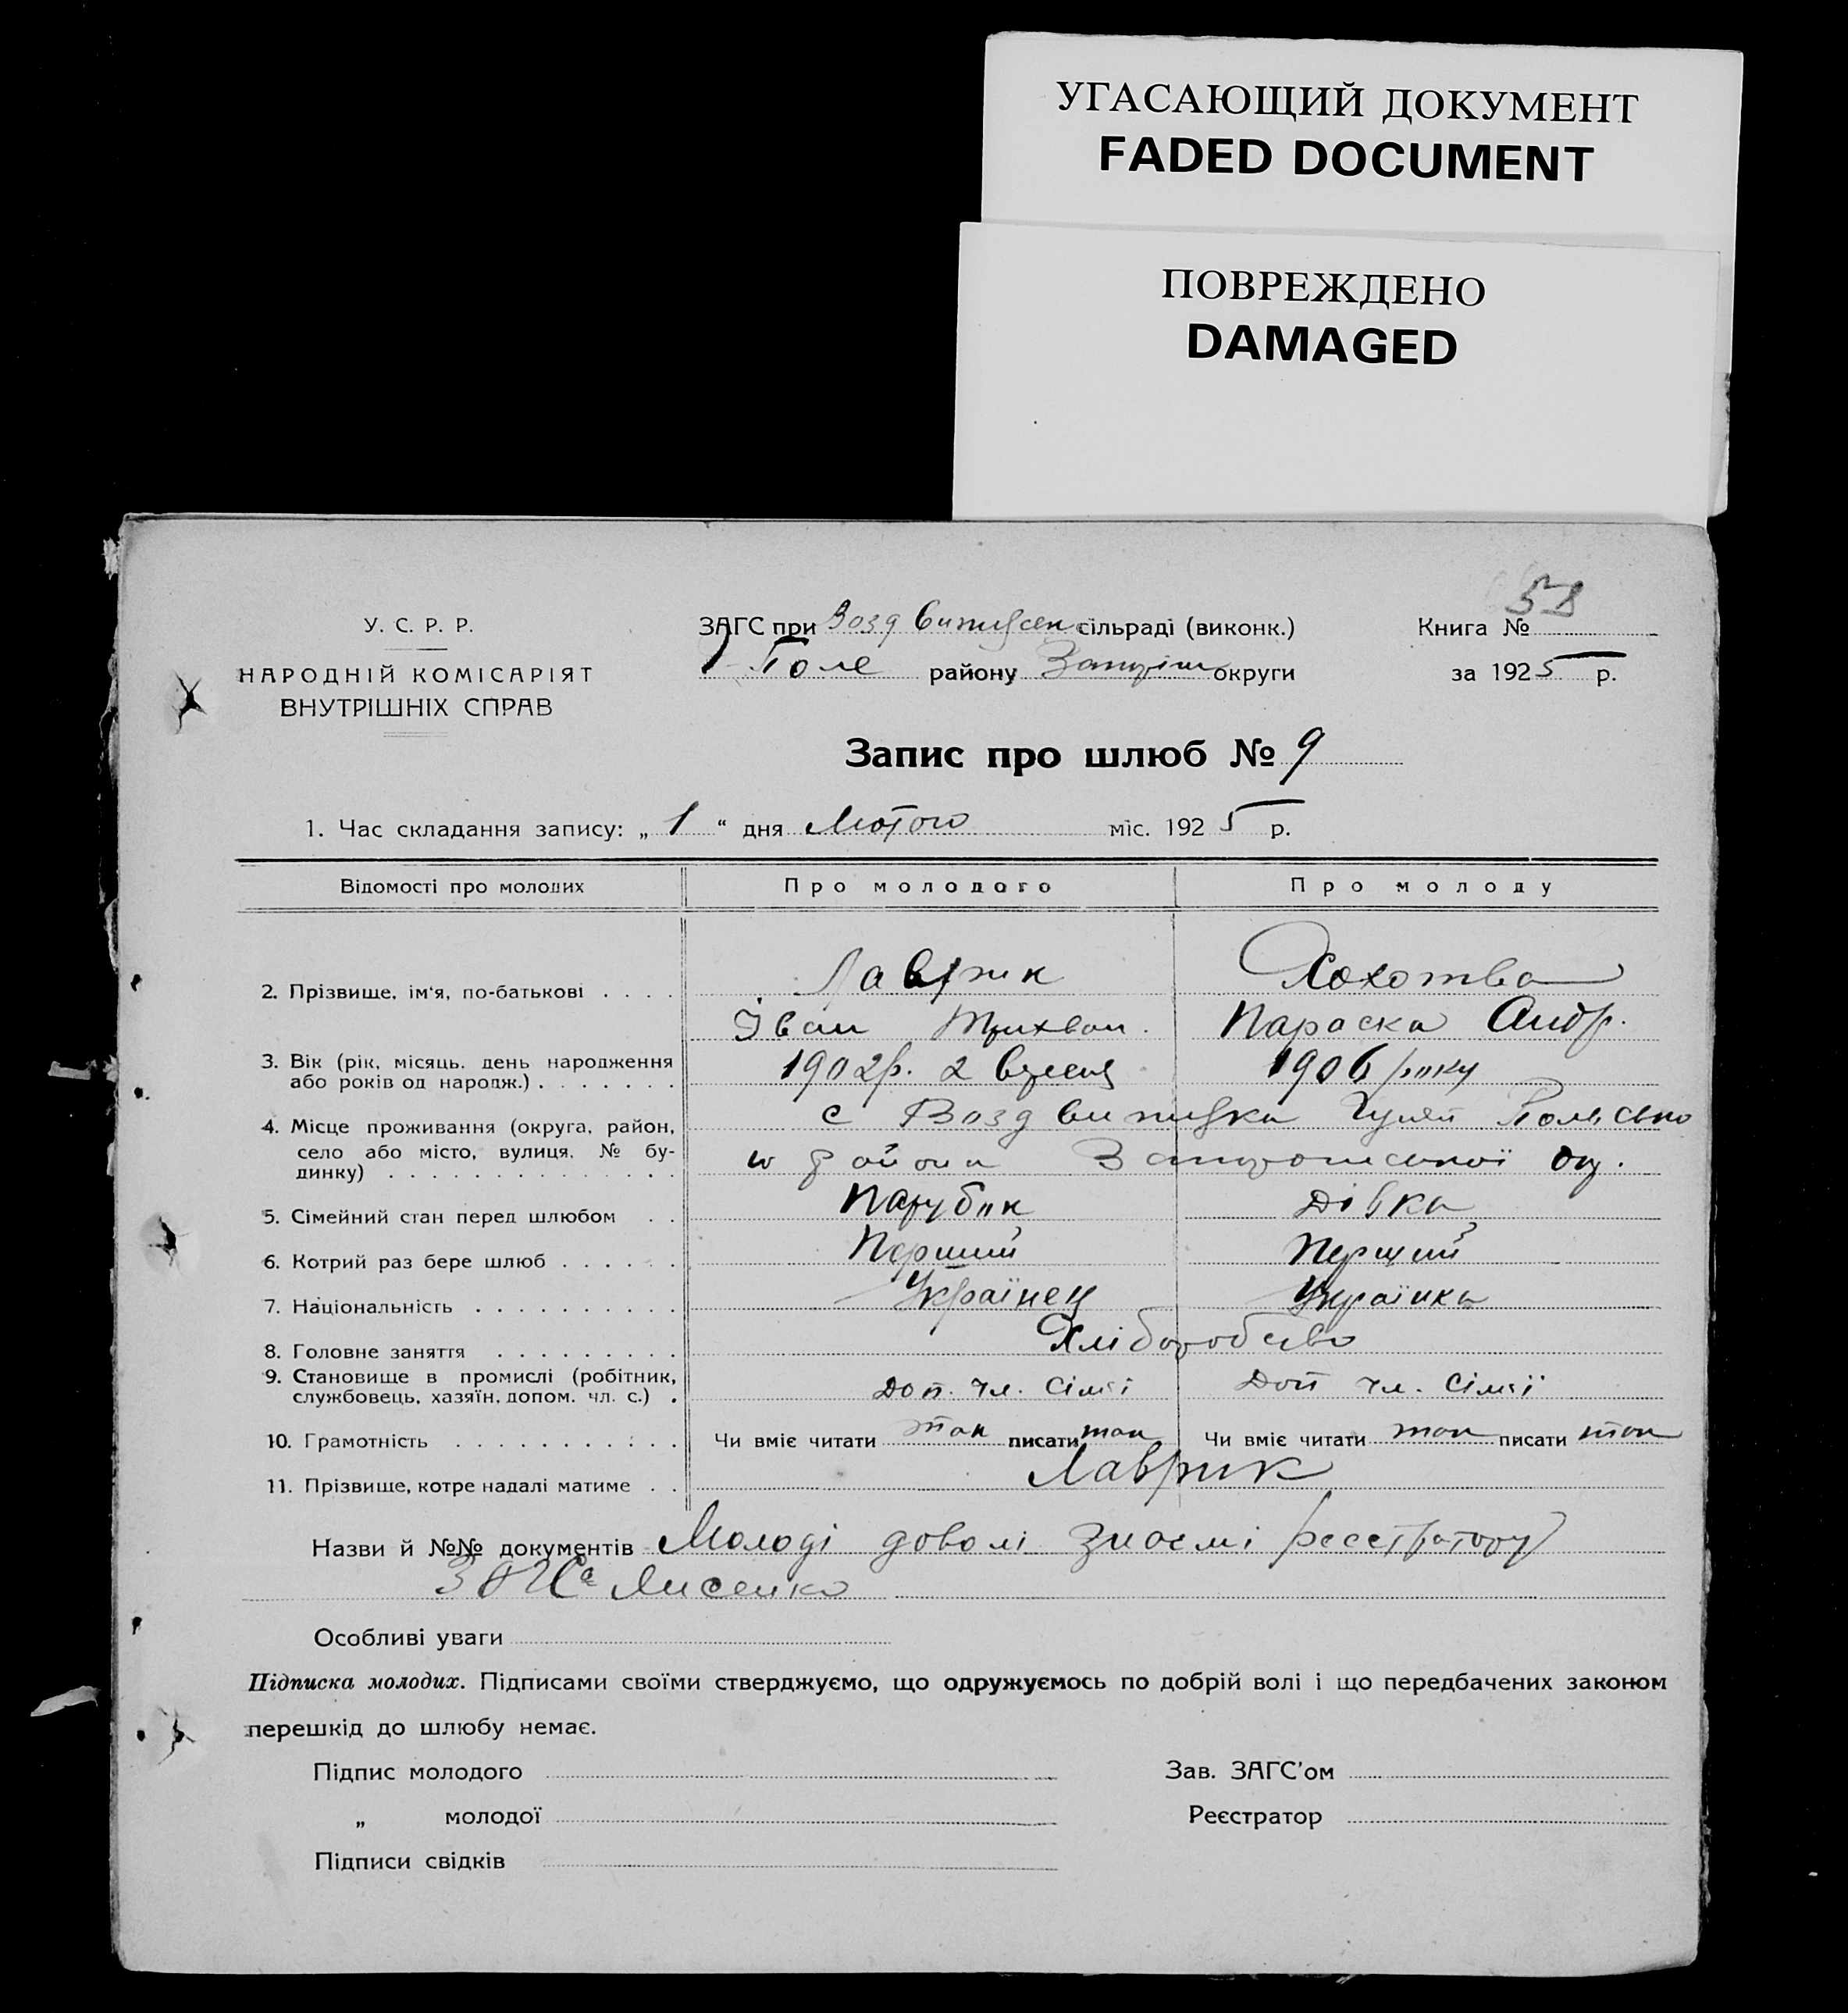 УГАСАЮЩИЙ ДОКУМЕНТ
FADED DOCUMENT
ПОВРЕЖДЕНО
DAMAGED
58
У. С. Р. Р.
НАРОДНІЙ КОМІСАРІЯТ
ВНУТРІШНІХ СПРАВ
ЗАГС при Воздвижусен сільраді (виконк.)
Г-Поле району Запоріж округи
Книга №
за 1925 р.
Запис про шлюб № 9
1. Час складання запису: „ 1 “ дня Лютого міс. 1925 р.
Відомості про молодих Про молодого Про молоду
2. Прізвище, ім'я, по-батькові . . . . Лаврик Хохотва
Іван Трихван. Параска Андр.
3. Вік (рік, місяць, день народження або років од народж.) . . . . . . . 1902р. 2 вересня 1906 року
4. Місце проживання (округа, район, село або місто, вулиця, № будинку) . . . . . . . . . . . . . с Воздвижувка Гуляй Польсько
го района Запорожськой окр.
5. Сімейний стан перед шлюбом . . Парубок Дівка
6. Котрий раз бере шлюб . . . . . . Перший Перщий
7. Національність . . . . . . . . . . Українец Українка
8. Головне заняття . . . . . . . . . Хліборобство
9. Становище в промислі (робітник, службовець, хазяїн, допом. чл. с.) . Доп. чл. сімʼї Доп чл. сімʼї
10. Грамотність . . . . . . . . . . . Чи вміє читати так писати так Чи вміє читати так писати так
11. Прізвище, котре надалі матиме . . Лаврик
Назви й №№ документів Молоді доволі знаємі реєстратору
ЗАГСа Лисенко
Особливі уваги
Підписка молодих. Підписами своїми стверджуємо, що одружуємось по добрій волі і що передбачених законом
перешкід до шлюбу немає.
Підпис молодого Зав. ЗАГС'ом
„ молодої Реєстратор
Підписи свідків